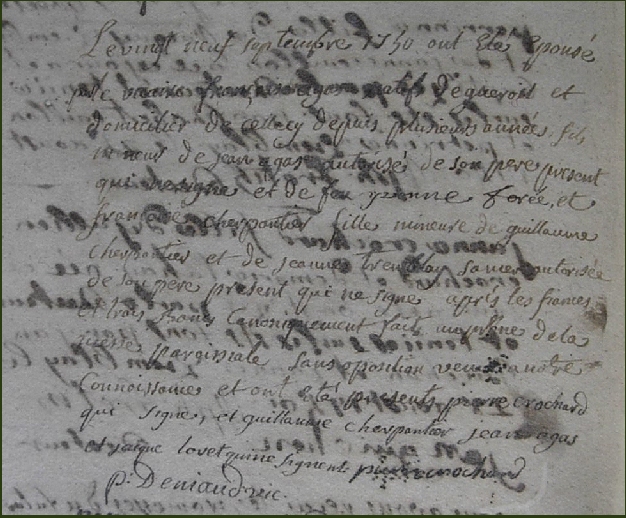 Le vint neuf septembre 1750 ont Ete Epousé
par le vicaire françois agas natif d'equeroit et
domicilier de cellecy depuis plusieurs années, fils
mineur de jean agas autorisé de son pere present
qui ne signe et de feu jeanne forée, et
françoise cherpantier fille mineure de guillaume
cherpantier et de jeanne tremblay sa mere autorisée
de son pere present qui ne signe après les fiances
et trois bans canoniquement faits au prône de la
messe paroissiale sans oposition venue a notre
Connoissance et ont eté presents pierre crochard
qui signe, et guillaume cherpantier jean agas
et jacque lovet qui ne signent pierre crochard
P. Deniaud vic.